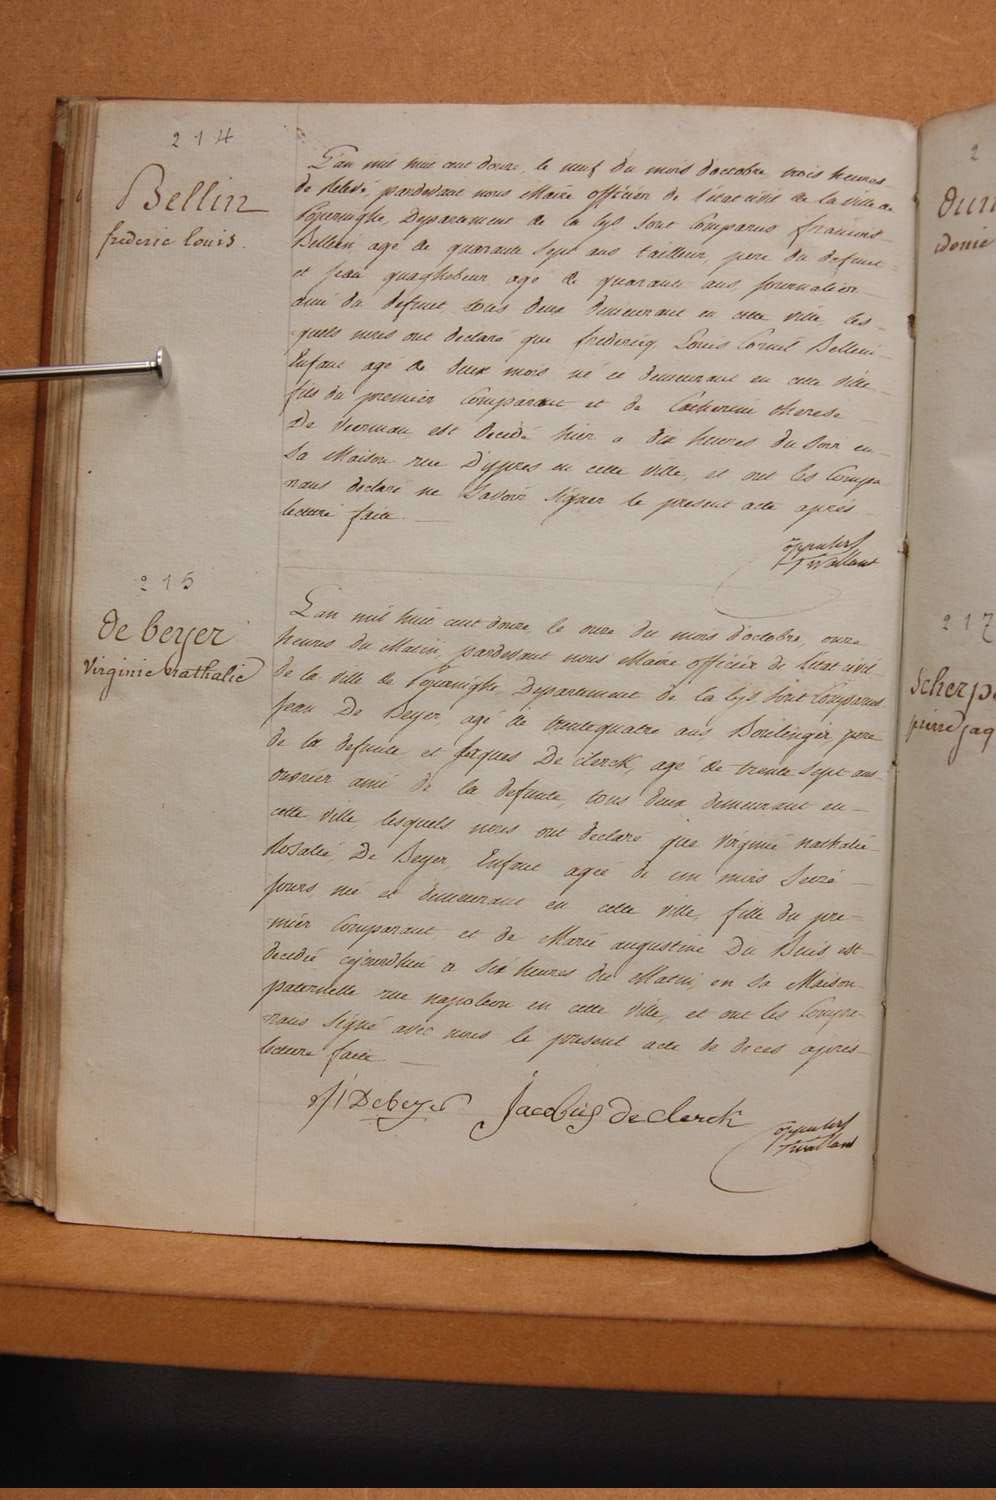 214
Bellin
frederic louis.
L'an mil huit cent douze, le neuf du mois d'octobre trois heures
de Relevé pardevant nous Maire officier de l'état civil de la ville de
Poperinghe, Departement de la Lys sont Comparus francois
Bellein agé de quarante sept ans tailleur, pere du defunt
et jean quaghebeur agé de quarante ans journalier
ami du defunt, tous deux demeurant en cette ville les-
quels nous ont declaré que fredericq Louis Cornil Bellein
Enfant agé de deux mois né et demeurant en cette ville
fils du premier Comparant et de Catherine therese
De est decedé hier a dix heures du soir en
sa Maison rue D'ypres en cette ville, et ont les Compa
rans declaré ne Savoir signer le present acte après
lecture faite
215
de beyer
virginie nathalie
L'an mil huit cent douze le onze du mois d'octobre, onze
heures du Matin, pardevant nous Maire officier de l'état civil
de la ville de Poperinghe, Departement de la Lys sont Comparus
Jean De Beyer, agé de trentequatre ans Boulenger, pere
de la defunte et jacques De Clerck, agé de trente sept ans
ouvrier ami de la defunte, tous deux demeurant en
cette ville lesquels nous ont declaré que virginie nathalie
Rosalie De Beyer, Enfant agée de un mois seize
jours, né et demeurant en cette ville, fille du pre-
mier Comparant et de Marie augustine Du Buis est
decedée ajourdhui a six heures du Matin, en sa Maison
paternelle rue napoleon en cette ville, et ont les Compa-
rans signé avec nous le present acte de deces après
lecture faite
Debeyer Jacobus de Clerck
2
dun
idonie
217
Scherp
pierre jaq